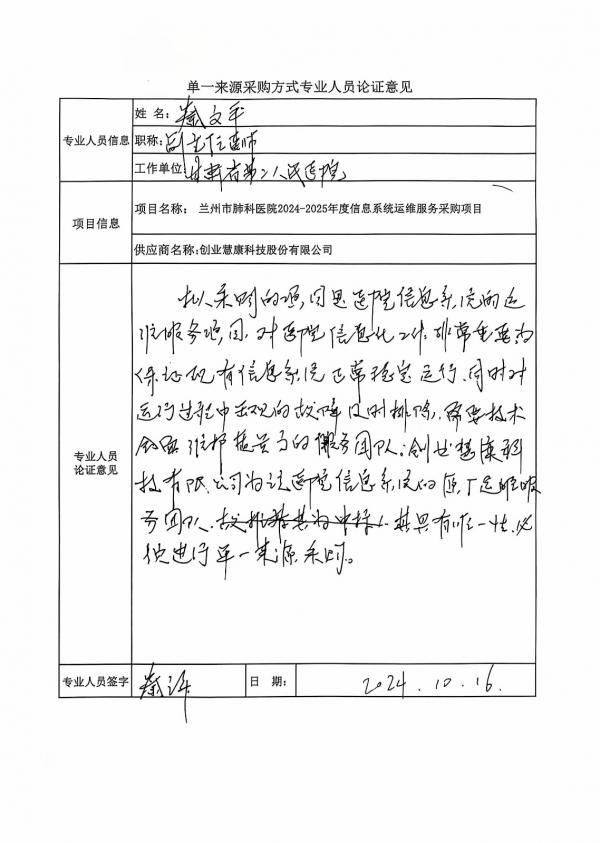 单一来源采购方式专业人员论证意见
专业人员信息
姓 名：蔡文平
职称：副主任医师
工作单位：甘肃省第二人民医院
项目信息
项目名称： 兰州市肺科医院2024-2025年度信息系统运维服务采购项目
供应商名称：创业慧康科技股份有限公司
专业人员
论证意见
此次采购的项目是医院信息系统的运
维服务项目，对医院信息化工作非常重要为
保证现有信息系统正常稳定运行，同时对
运行过程中出现的故障及时排除，需要技术
维护 的服务团队；创业慧康科
技有限公司为该医院信息系统的原厂运维服
务团队，其具有唯一性，必
须进行单一来源采购。
专业人员签字
日 期：
2024.10.16.